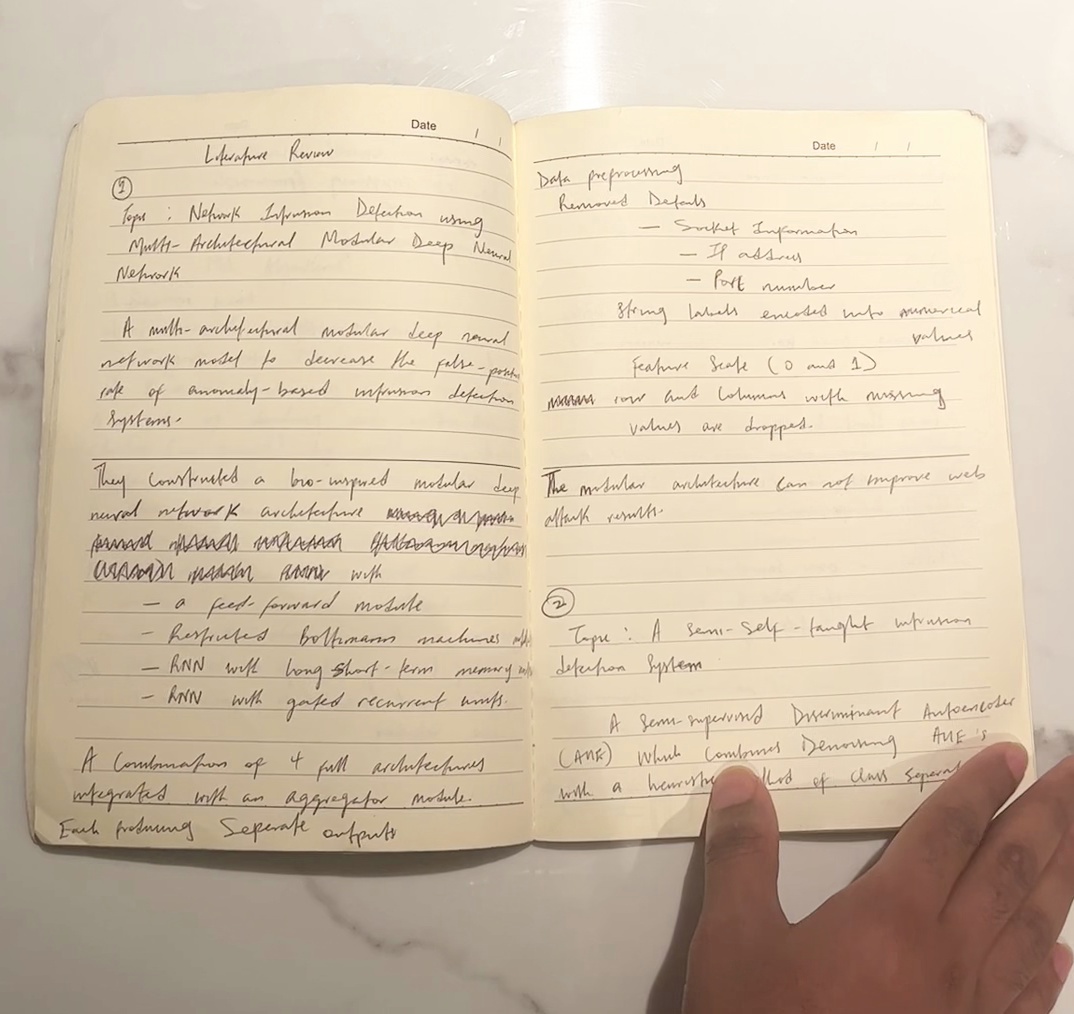 Date / /
Literature Review
1
Topic : Network Intrusion Detection using
Multi-Architectural Modular Deep Neural
Network
A multi-architectural modular deep neural
network model to decrease the false-positive
rate of anomaly-based intrusion detection
systems.
They constructed a bio-inspired modular deep
neural network architecture
with
— a feed-forward module
— Restricted Boltzmann machines
— RNN with long short-term memory
— RNN with gated recurrent units.
A Combination of 4 full architectures
integrated with an aggregator module.
Each producing Seperate outputs
Date / /
Data preprocessing
Removed Details
— Socket Information
— IP address
— Port number
String labels encoded into numerical
values
Feature Scale (0 and 1)
row and Columns with missing
values are dropped.
The modular architecture can not improve web
attack results.
2
Topic : A semi-self-taught intrusion
detection System
A Semi-supervised Discriminant Autoencoder
Which Combines Denoising
with a of class